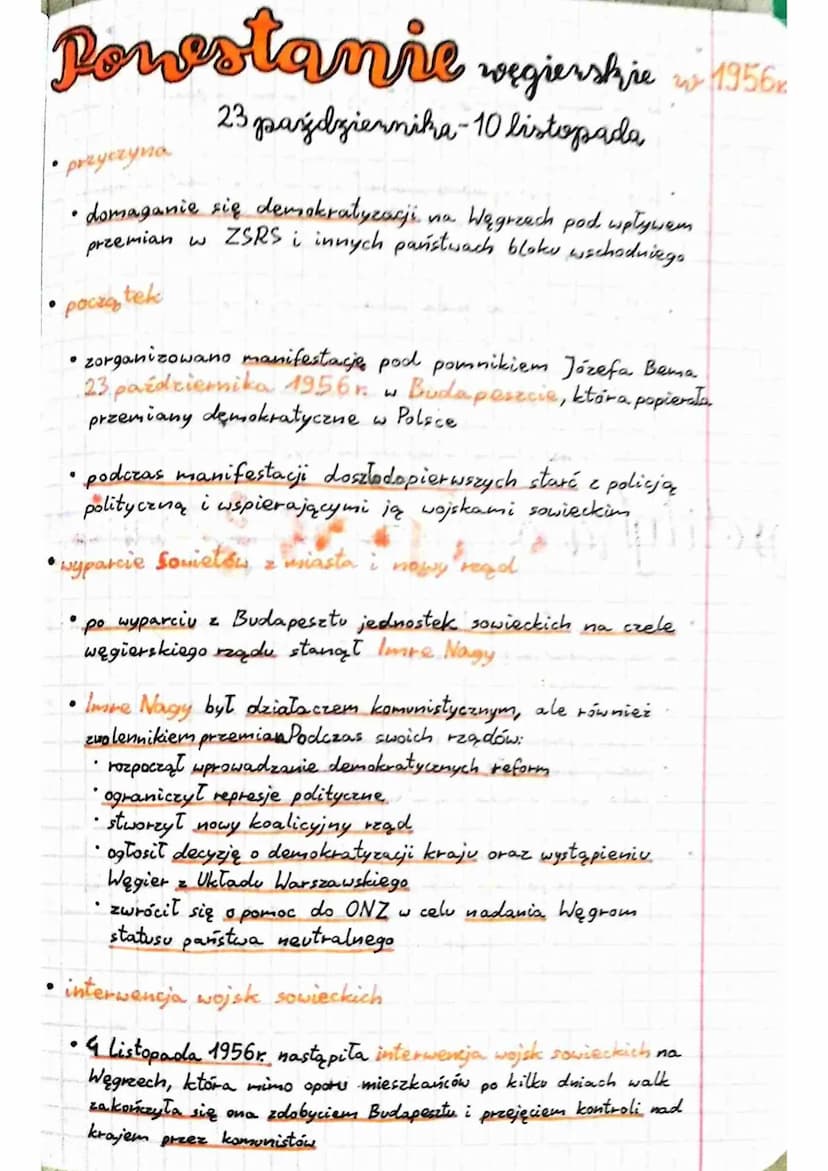 Powstanie węgierskie w 1956r.
23 października - 10 listopada
• przyczyna
• domaganie się demokratyzacji na Węgrzech pod wpływem
przemian w ZSRS i innych państwach bloku wschodniego
• początek
• zorganizowano manifestację pod pomnikiem Józefa Bema
23 października 1956r. w Budapeszcie, która popierała
przemiany demokratyczne w Polsce
• podczas manifestacji doszło do pierwszych starć z policją
polityczną i wspierającymi ją wojskami sowieckim
• wyparcie Sowietów z miasta i nowy rząd
• po wyparciu z Budapesztu jednostek sowieckich na czele
węgierskiego rządu stanął Imre Nagy
• Imre Nagy był działaczem komunistycznym, ale również
zwolennikiem przemian Podczas swoich rządów:
• rozpoczął wprowadzanie demokratycznych reform
• ograniczył represje polityczne
• stworzył nowy koalicyjny rząd
• ogłosił decyzję o demokratyzacji kraju oraz wystąpieniu
Węgier z Układu Warszawskiego
• zwrócił się o pomoc do ONZ w celu nadania Węgrom
statusu państwa neutralnego
• interwencja wojsk sowieckich
• 4 listopada 1956r. nastąpiła interwencja wojsk sowieckich na
Węgrzech, która mimo oporu mieszkańców po kilku dniach walk
zakończyła się ona zdobyciem Budapesztu i przejęciem kontroli nad
krajem przez komunistów